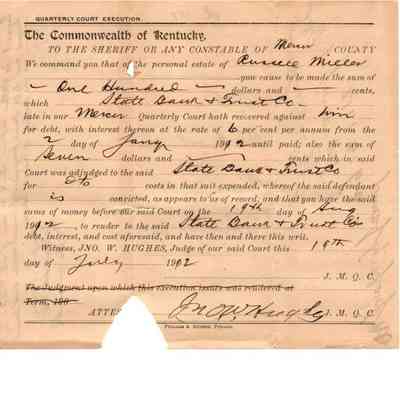 QUARTERLY COURT EXECUTION.
The Commonwealth of Kentucky,
TO THE SHERIFF OR ANY CONSTABLE OF Mercer COUNTY
We command you that of the personal estate of Russell Miller
you cause to be made the sum of
One Hundred dollars and cents,
which State Bank & Trust Co
late in our Mercer Quarterly Court hath recovered against him
for debt, with interest thereon at the rate of 6 per cent per annum from the
2 day of Jany 1912 until paid; also the sum of
Seven dollars and cents which in said
Court was adjudged to the said State Bank & Trust Co
for costs in that suit expended, whereof the said defendant
is convicted, as appears to us of record, and that you have the said
sums of money before our said Court on the 19th day of Aug
1912, to render to the said State Bank & Trust Co
debt, interest, and cost aforesaid, and have then and there this writ.
Witness, JNO. W. HUGHES, Judge of our said Court this 18th
day of July 1912
J. M. Q. C.
The Judgment upon which this execution issues was rendered at
Term, 190
ATTE
Jno W Hughes J. M. Q. C.